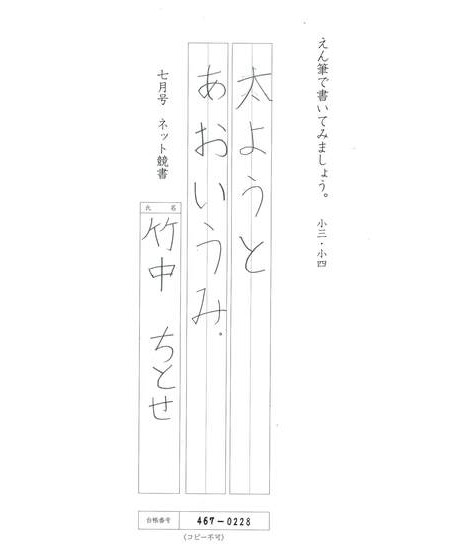 えん筆で書いてみましょう。 小三・小四
太ようと
あおいうみ。
七月号 ネット競書
氏名
竹中 ちとせ
台帳番号 467-0228
(コピー不可)